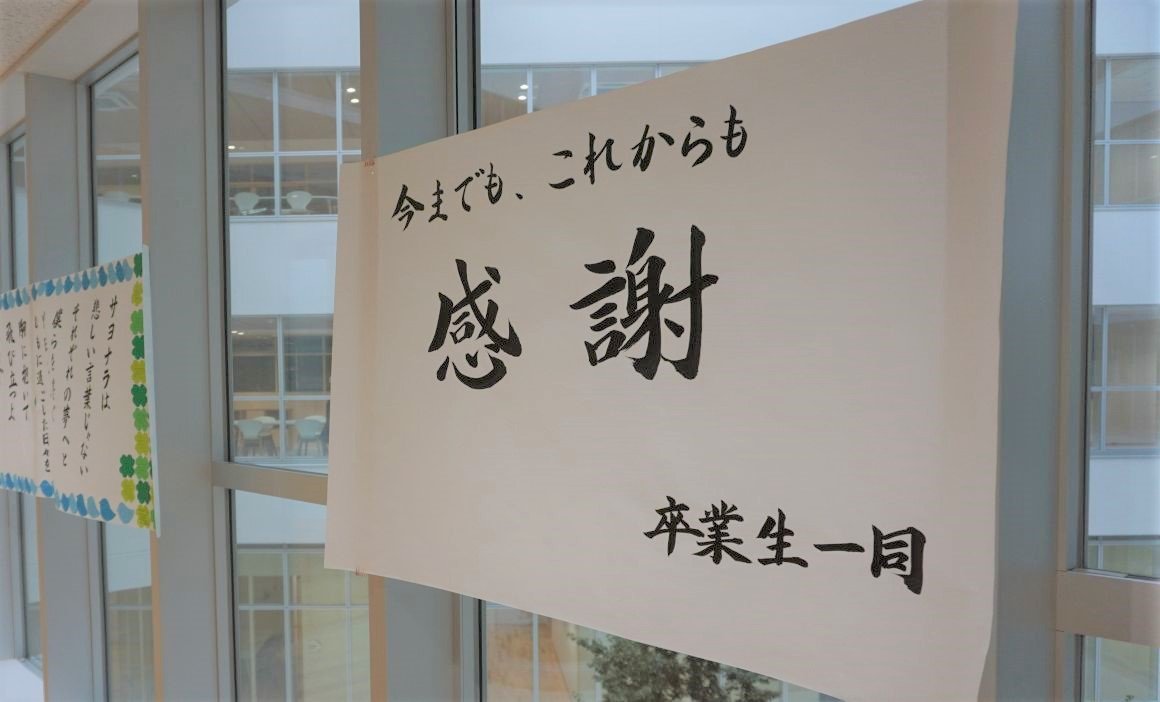 今までも、これからも
感謝
卒業生一同
サヨナラは
悲しい言葉じゃない
それぞれの夢へと
僕らを
ともに過ごした日々を
胸に抱いて
飛び立つよ